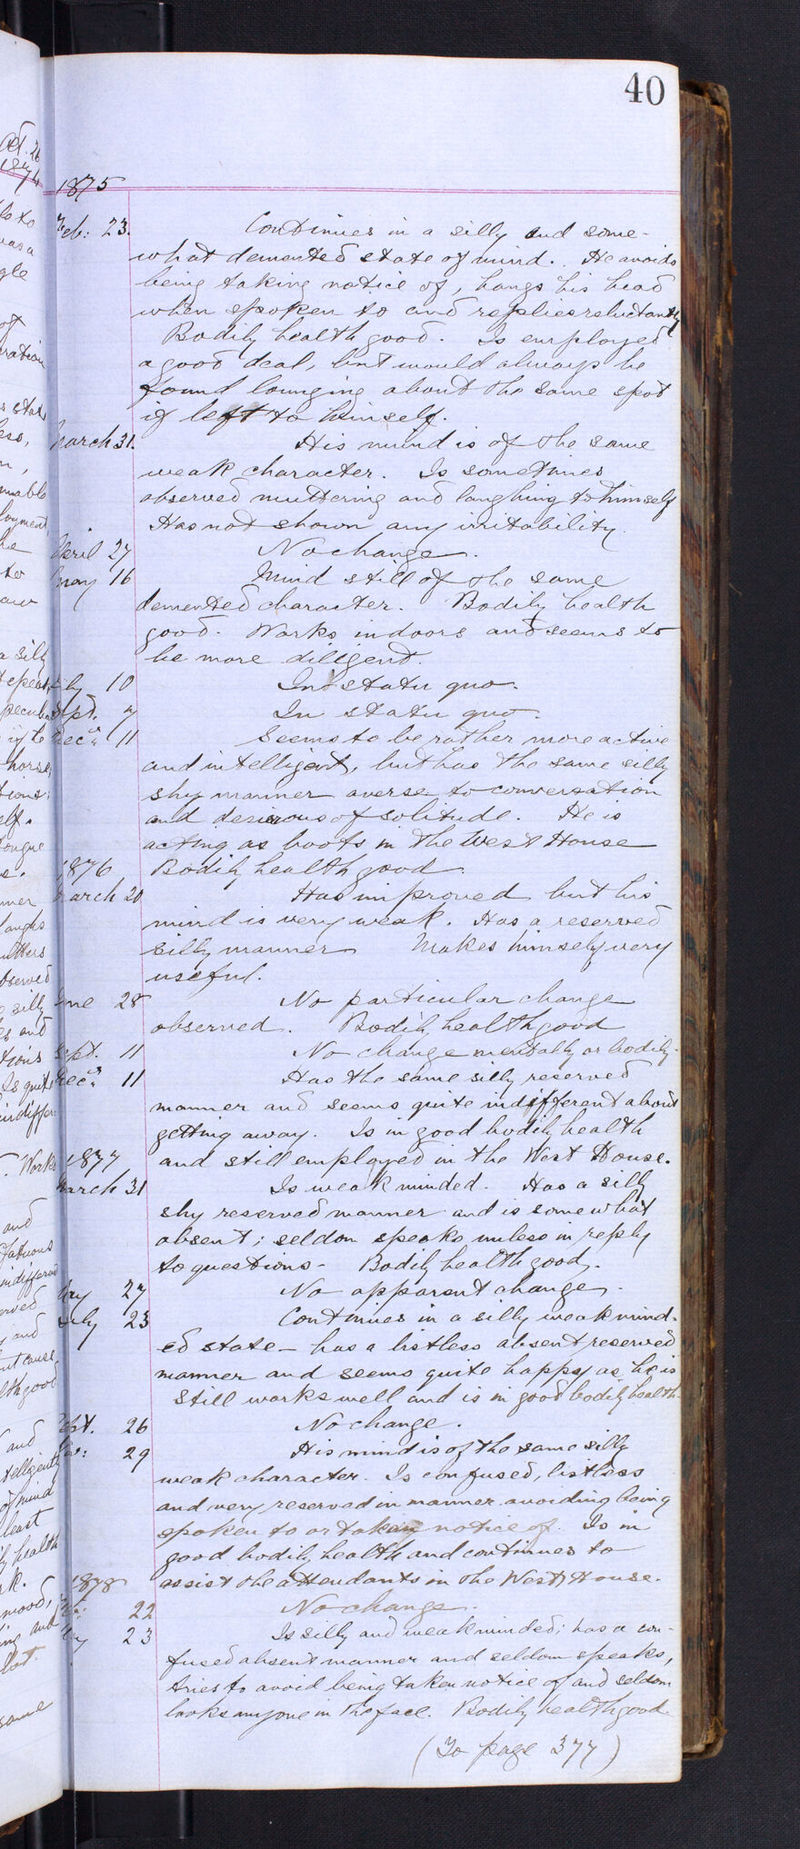 40
1875
Feb: 23. Continues in a silly and some-
what demented state of mind. He avoids
being taking notice of, hangs his head
when spoken to and replies reluctantly
Bodily health good. Is employed
a good deal, but would always be
found lounging about the same spot
if left to himself.
March 31. His mind is of the same
weak character. Is sometimes
observed muttering and laughing to himself
Has not shown any irritability.
April 27 No change.
May 16 Mind still of the same
demented character. Bodily health
good. Works indoors and seems to
be more diligent.
July 10 In statu quo.
Sept. 7 In statu quo.
Decr. 11 Seems to be rather more active
and intelligent, but has the same silly
shy manner averse to conversation
and desirous of solitude. He is
acting as boots in the West House
1876 Bodily health good.
March 20 Has improved but his
mind is very weak. Has a reserved
silly manner Makes himself very
useful.
June 28 No particular change
observed. Bodily health good
Sept. 11 No change mentally or bodily.
Decr. 11 Has the same silly reserved
manner and seems quite indifferent about
getting away. Is in good bodily health
1877 and still employed in the West House.
March 31 Is weak minded. Has a silly
shy reserved manner and is somewhat
absent; seldom speaks unless in reply
to questions - Bodily health good.
May 27 No apparent change.
July 23 Continues in a silly weak mind-
ed state - has a listless absent reserved
manner and seems quite happy as he is
Still works well and is in good bodily health.
Sept. 26 No change.
29 His mind is of the same silly
weak character. Is confused, listless
and very reserved in manner avoiding being
spoken to or taken notice of. Is in
good bodily health and continues to
assist the attendants in the West House.
1878
22 No change.
23 Is silly and weakminded; has a con-
fused absent manner and seldom speaks,
tries to avoid being taken notice of and seldom
looks anyone in the face. Bodily health good.
(To page 377)